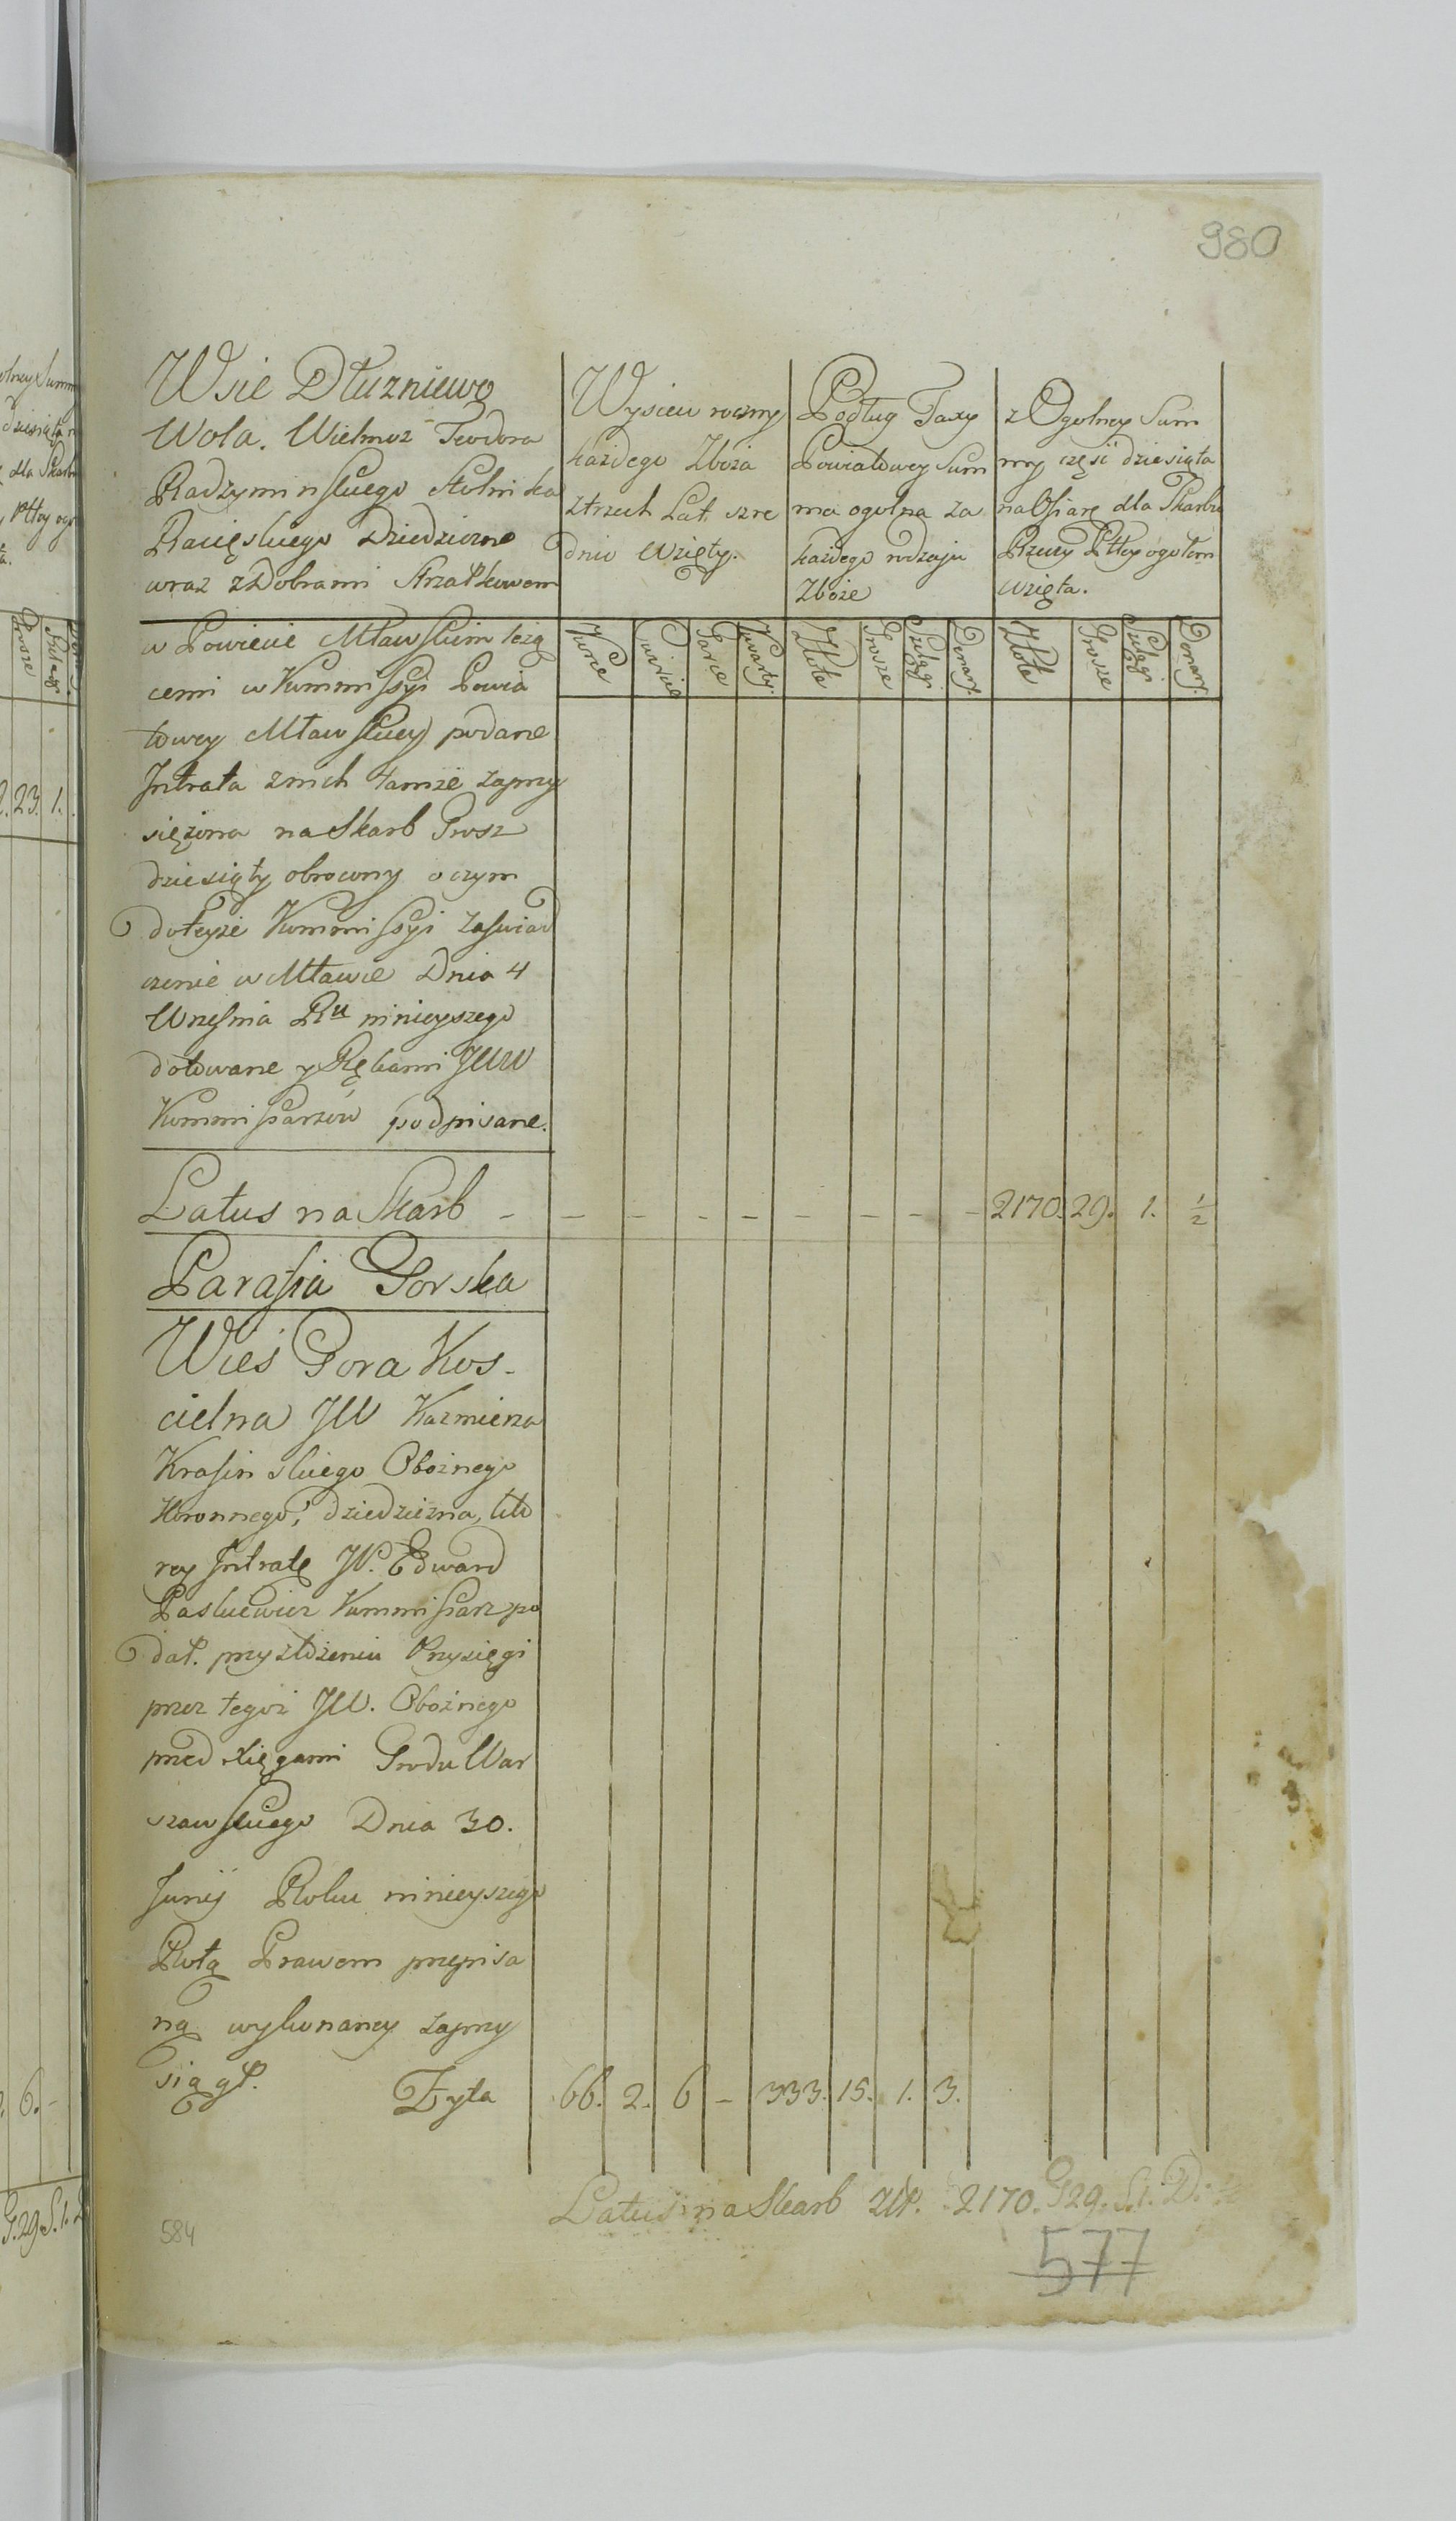 980
Wsie Dłuzniewo
Wola. Wielmoż Teodora
Radzyminskiego Stolnika
Raciąskiego Dziedziczne
wraz z Dobrami Strzałkowem
w Powiecie Mławskim leżą
cemi w Kommissyi Powia
towey Mławskiey podane
Intrata z nich tamże zaprzy
siężona na Skarb Grosz
dziesiąty obrocony o czym
doteyże Kommissyi zaswiad
czenie w Mławie Dnia 4
Września Ru ninieyszego
datowane y Rękami JWW
Kommissarzow podpisane.
Wysiew roczny
każdego Zboża
z trzech Lat szre
dnio wzięty.
Podług Taxy
Powiatowey Sum
ma ogolna za
każdego rodzaju
Zboże
z Ogolney Sum
my częsć dziesiąta
na Ofiarę dla Skarbu
Rzczey Pltey ogołem
wzięta.
Korce Cwiercie Garce Kwarty Złote Grosze Szelągi Denary. Złote Grosze Szelągi Denary.
Latus na Skarb - - - - - - - - - 2170. 29. 1. 1/2
Parafia Gorska
Wieś Gora Kos-
cielna JW Kazmierza
Krasinskiego Obożnego
Koronnego, dziedziczna, któ
rey Intratę JP. Edward
Paskiewicz Kommissarz po
dał. przy złożeniu Przysięgi
przez tegoż JW. Obożnego
przed Xięgami Grodu War
szawskiego Dnia 30.
Junij Roku ninieyszego
Rotą Prawem przepisa
ną wykonaney zaprzy
siągł. Żyta 66. 2. 6 - 333. 15. 1. 3.
Latus na Skarb Złł. 2170. G 29. S. 1. D. 1/2
584
577